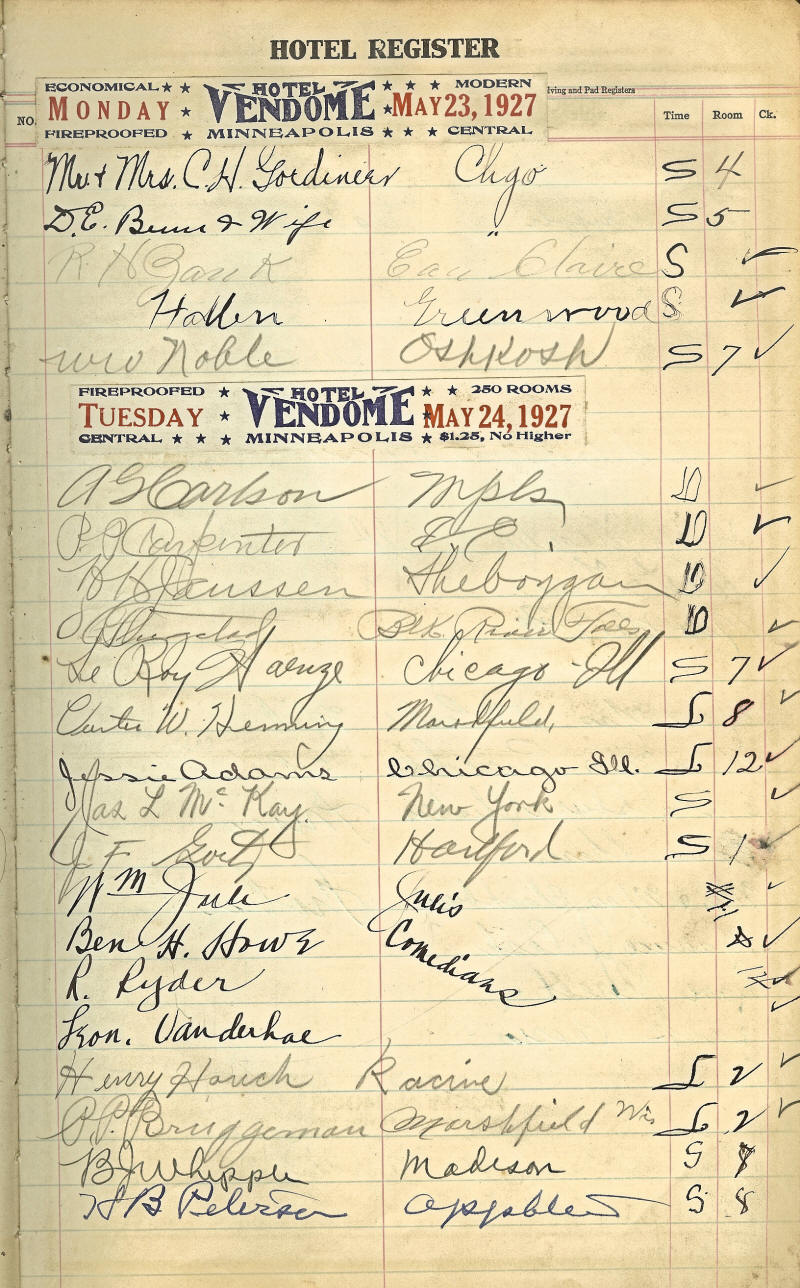 HOTEL REGISTER
ECONOMICAL ★ ★ HOTEL ★ ★ ★ MODERN
MONDAY ★ VENDOME ★ MAY 23, 1927
FIREPROOFED ★ MINNEAPOLIS ★ ★ ★ ★ CENTRAL
lving and Pad Registers
NO. Time Room Ck.
Mr & Mrs. C. H. Gordinier Chgo S 4
D. E. & Wife " S 5
R. H. Eau Claire S ✓
Hallen Greenwood S ✓
WW Noble Oshkosh S 7 ✓
FIREPROOFED ★ HOTEL ★ ★ 250 ROOMS
TUESDAY ★ VENDOME MAY 24, 1927
CENTRAL ★ ★ ★ MINNEAPOLIS ★ $1.25, No Higher
A G Carlson Mpls D ✓
Carpenter D ✓
H H Janssen Sheboygan D ✓
Blk River Falls D ✓
Le Roy Haenze Chicago - Ill S 7 ✓
W. Henning Marshfield, L 8 ✓
Jessie Adams Chicago Ill. L 12 ✓
Jas L McKay. New York S ✓
J F Hartford S 1
Wm Jule Jule's ✓
Ben H. Howe Comedians ✓
R. Ryder ✓
Vanderhae ✓
Henry Hauch Racine L 2 ✓
P. P. Bruggeman Marshfield Wis L 2 ✓
B J Whipple Madison S 8
H B Peterson S 8